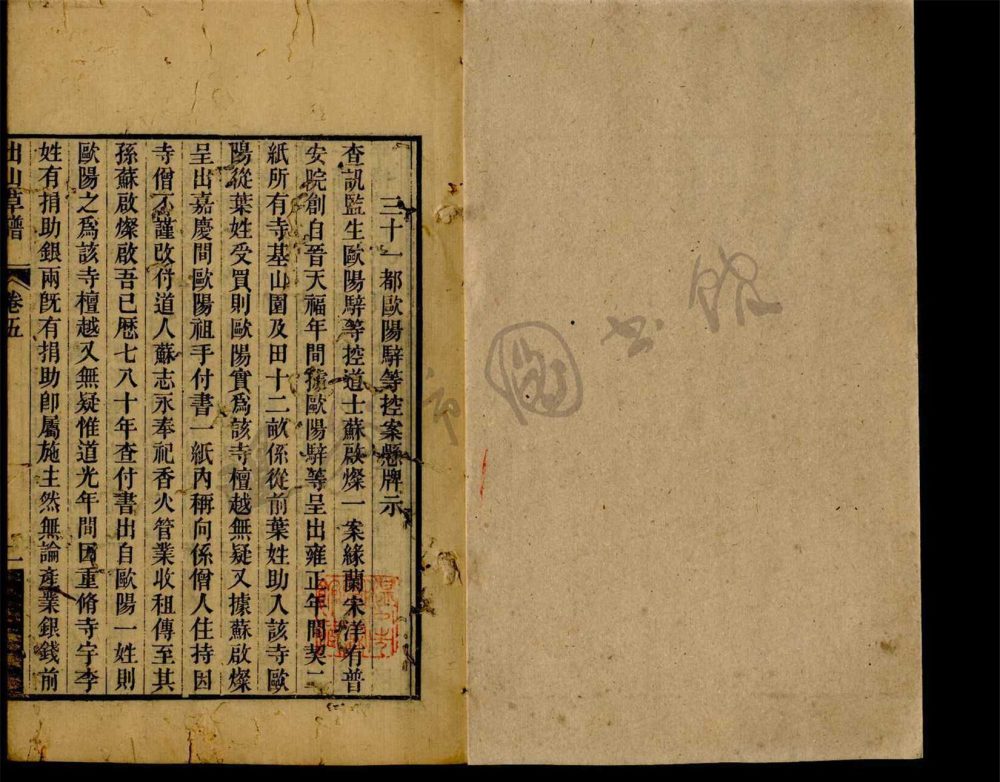 三十一都歐陽騂等控案懸牌示
查訊監生歐陽騂等控道士蘇啟燦一案緣蘭宋洋有普
安院創自晉天福年間據歐陽騂等呈出雍正年間契二
紙所有寺基山園及田十二畝係從前葉姓助入該寺歐
陽從葉姓受買則歐陽實爲該寺檀越無疑又據蘇啟燦
呈出嘉慶間歐陽祖手付書一紙內稱向係僧人住持因
寺僧不謹改付道人蘇志永奉祀香火管業收租傳至其
孫蘇啟燦啟吾已歷七八十年查付書出自歐陽一姓則
歐陽之爲該寺檀越又無疑惟道光年間因重脩寺宇李
姓有捐助銀兩旣有捐助卽屬施主然無論產業銀錢前
出山草譜
卷五
一
圖書館